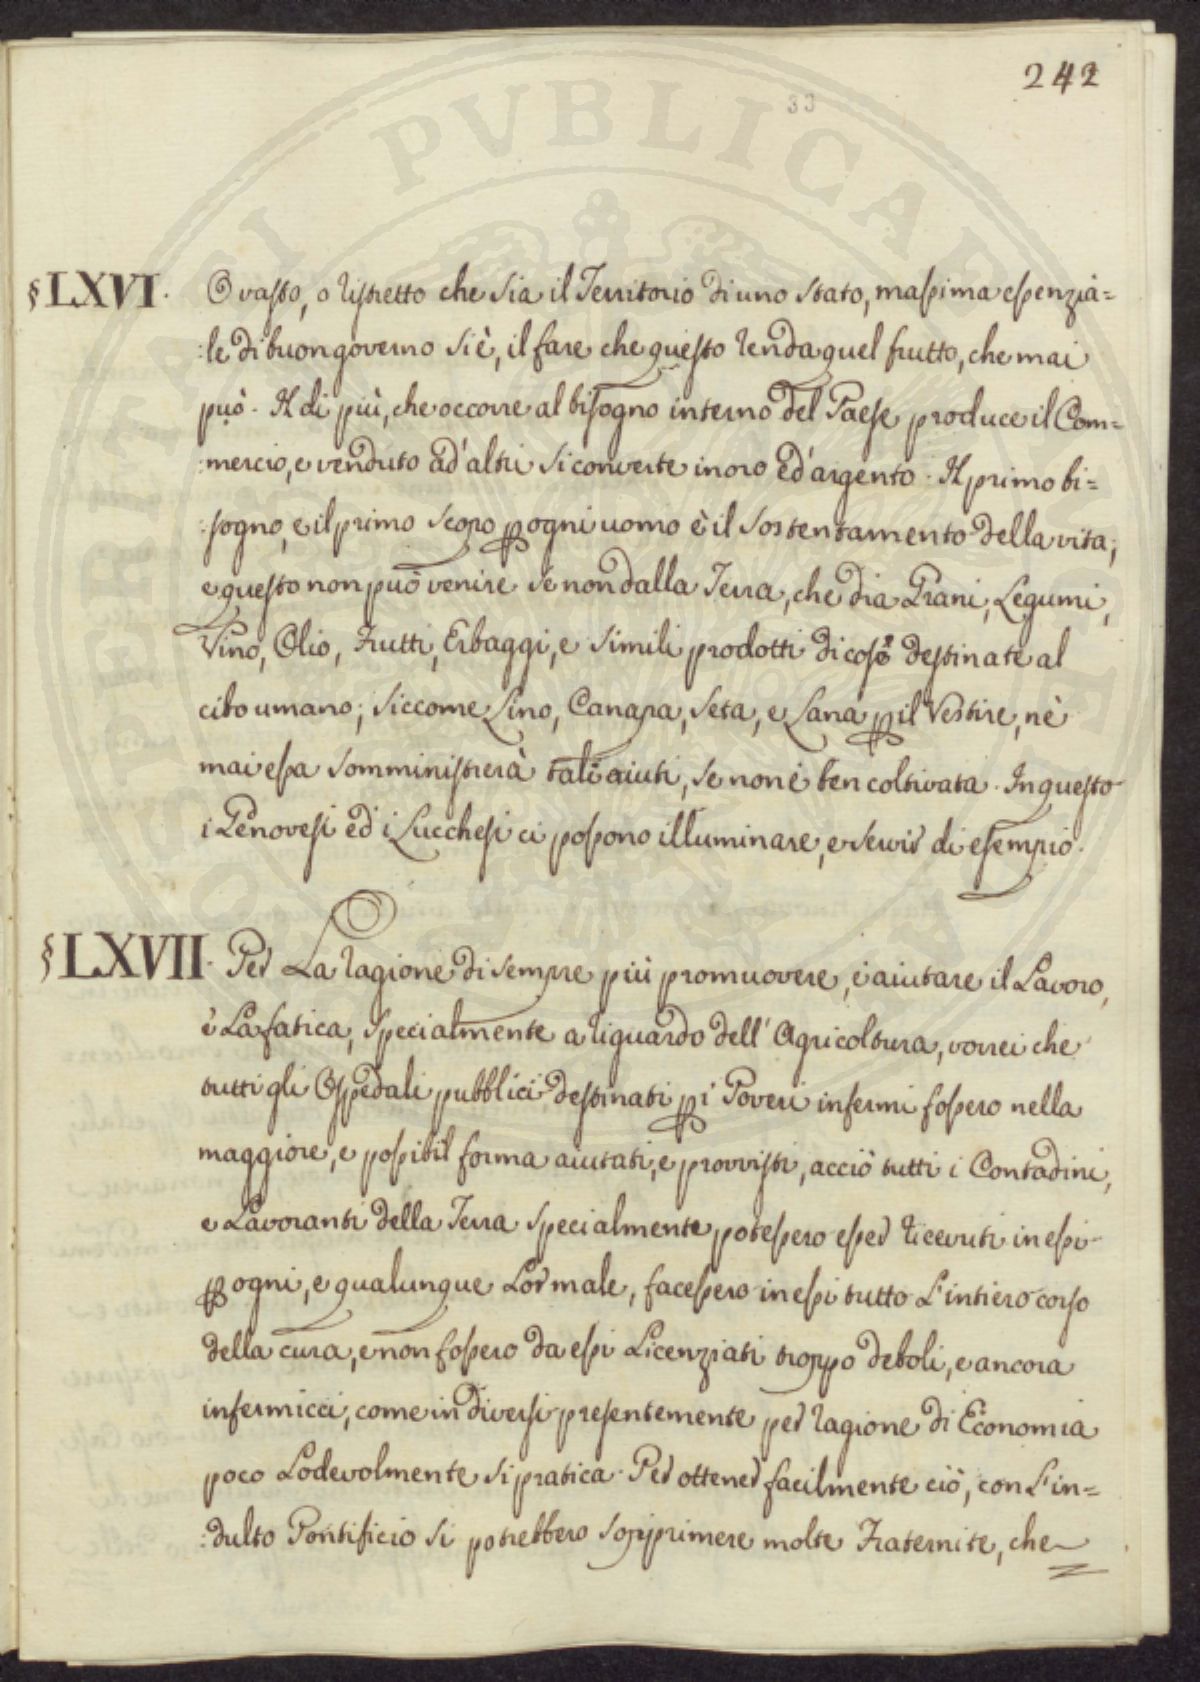 242
33
§LXVI. O vasto, o ristretto che sia il Territorio di uno stato, massima essenzia=
:le di buon governo si è, il fare che questo renda quel frutto, che mai
può. Il di più, che occorre al bisogno interno del Paese produce il Com=
:mercio, e venduto ad' altri si converte in oro ed' argento. Il primo bi=
:sogno, e il primo scopo ꝑ ogni uomo è il sostentamento della vita;
e questo non può venire se non dalla Terra, che dia Grani, Legumi,
Vino, Olio, Frutti, Erbaggi, e simili prodotti di cose destinate al
cibo umano; siccome Lino, Canapa, Seta, e Lana ꝑ il Vestire, nè
mai essa somministrerà tali aiuti, se non è ben coltivata. In questo
i Genovesi ed i Lucchesi ci possono illuminare, e servir di esempio.
§LXVII. Per La ragione di sempre più promuovere, è aiutare il Lavoro,
è La fatica, specialmente a riguardo dell' Agricoltura, vorrei che
tutti gli Ospedali pubblici destinati ꝑ i Poveri infermi fossero nella
maggiore, e possibil forma aiutati, e provvisti, acciò tutti i Contadini,
e Lavoranti della Terra specialmente potessero esser ricevuti in essi
ꝑ ogni, e qualunque Lor male, facessero in essi tutto L'intiero corso
della cura, e non fossero da essi Licenziati troppo deboli, e ancora
infermicci, come in diversi presentemente per ragione di Economia
poco Lodevolmente si pratica. Per ottener facilmente ciò, con L'in=
:dulto Pontificio si potrebbero sopprimere molte Fraternite, che
PVBLICAE